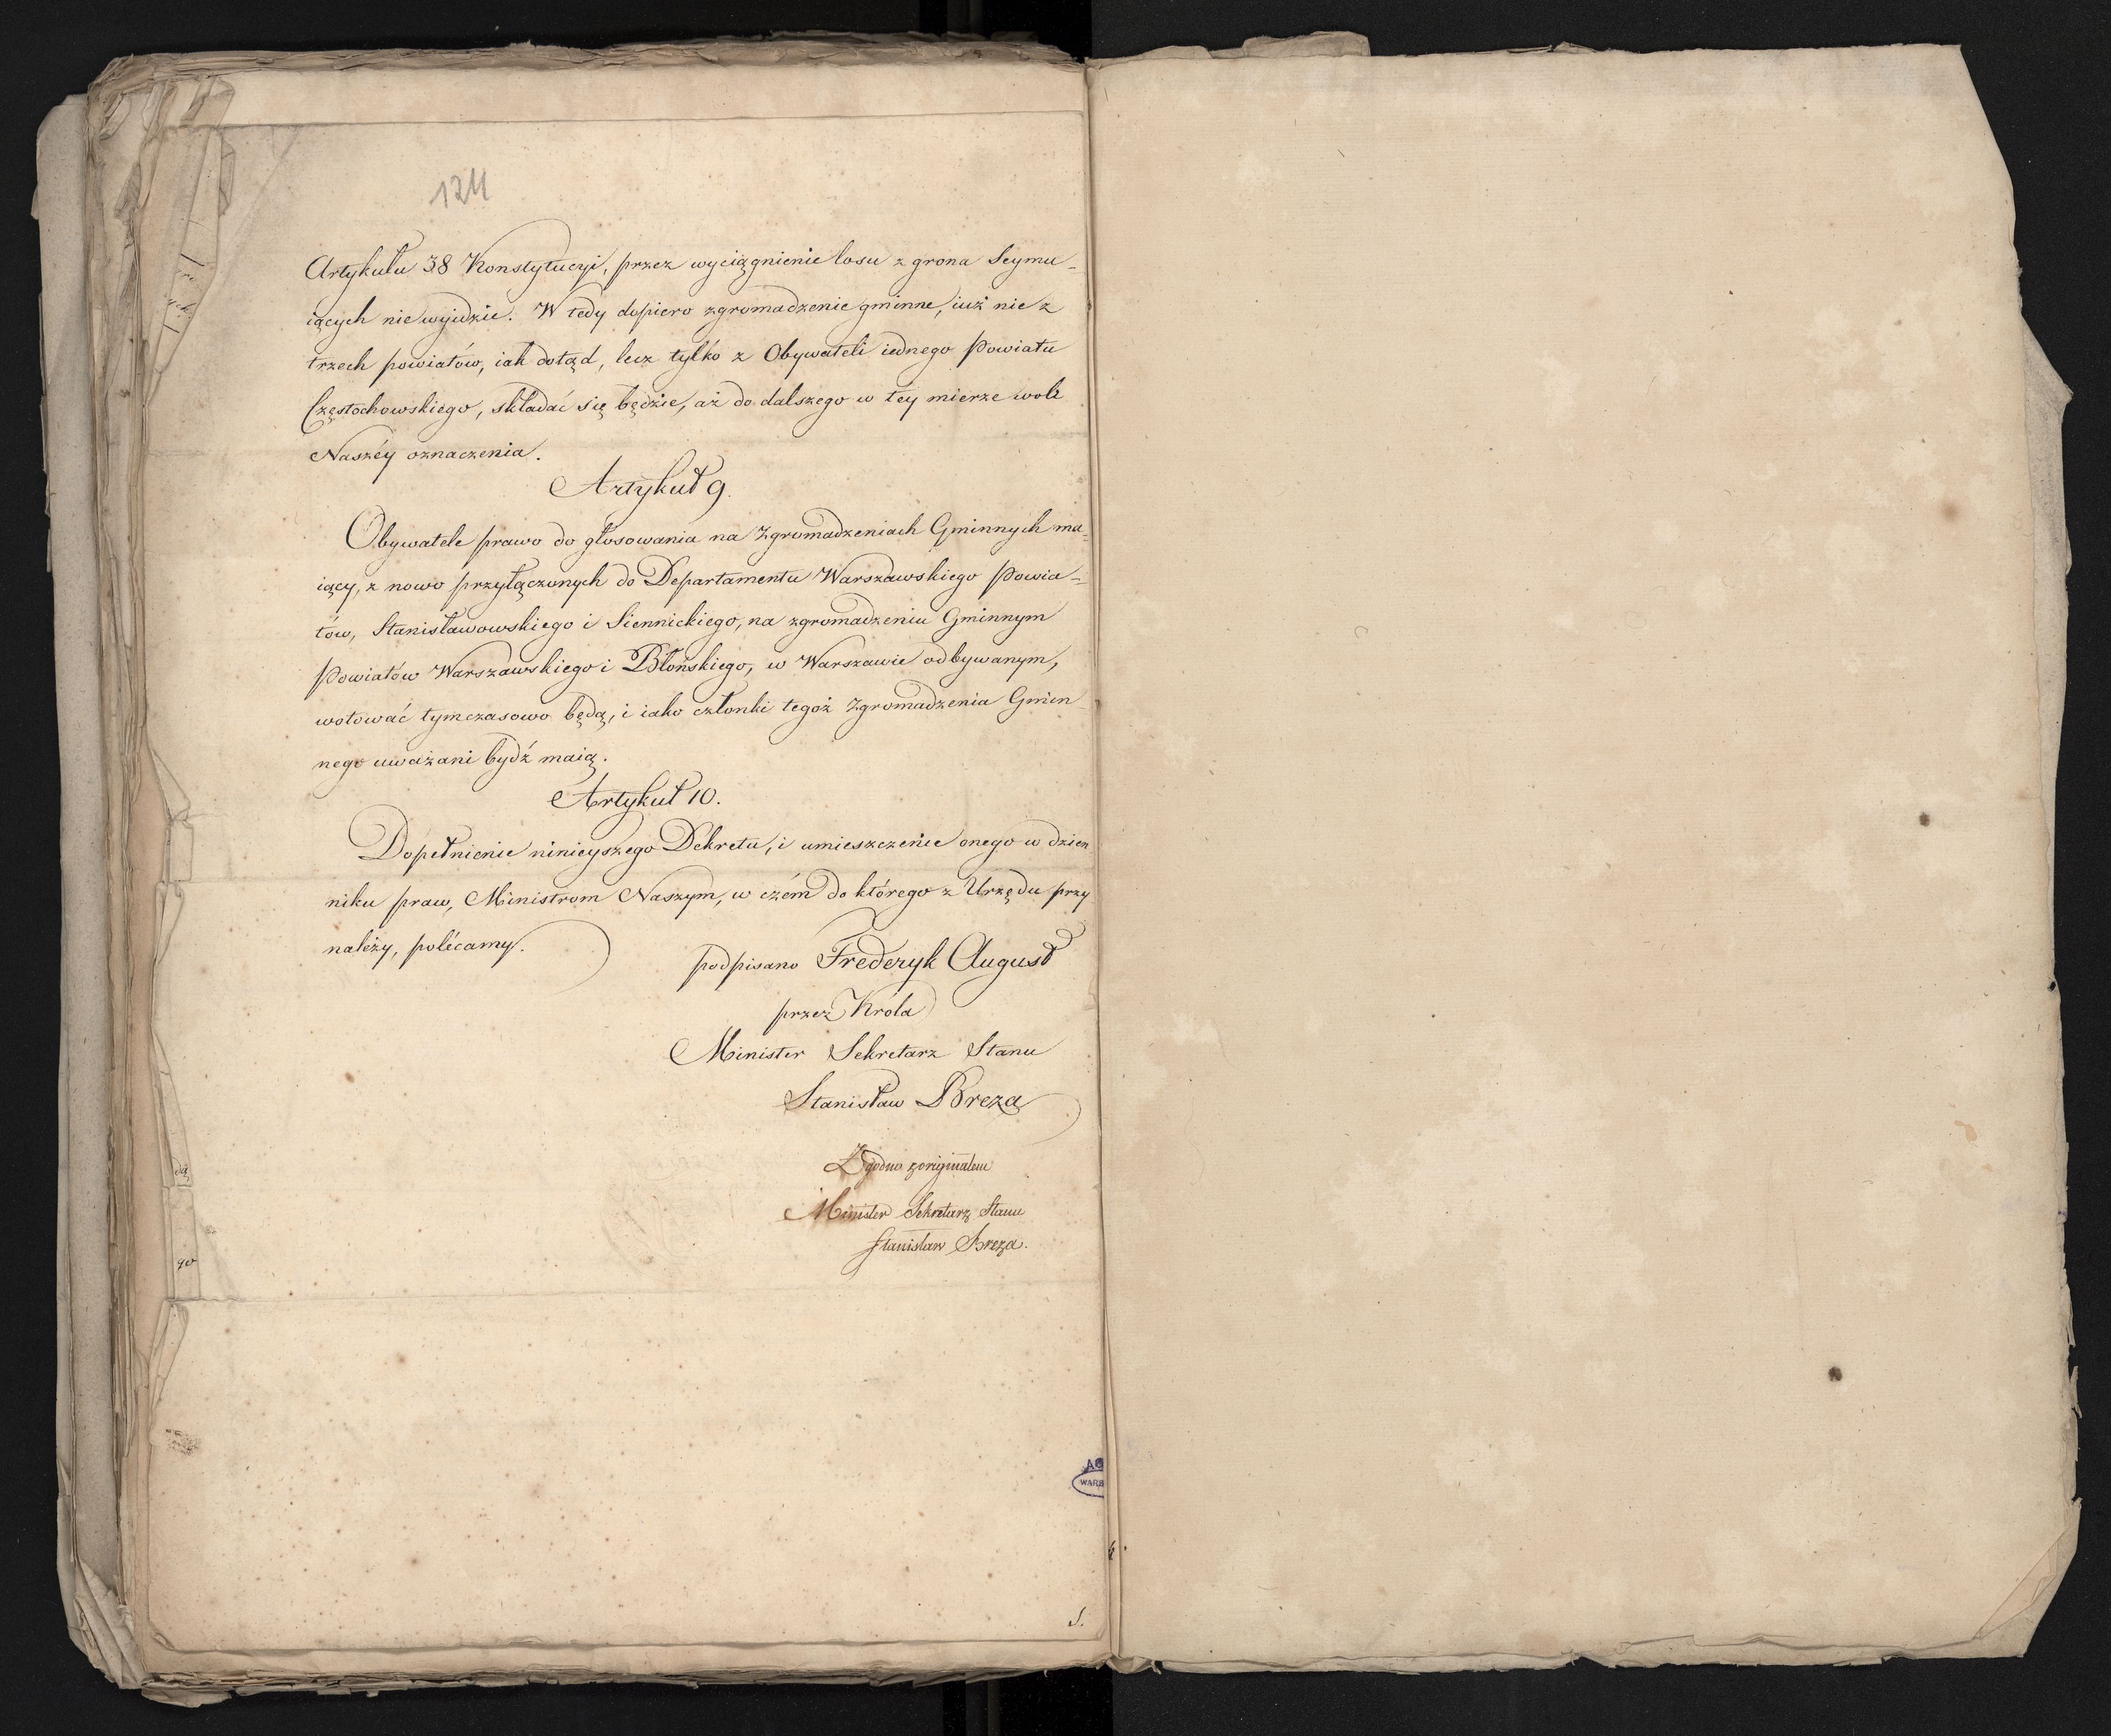 124
Artykułu 38 Konstytucyi, przez wyciągnienie losu z grona Seymu-
iących niewyidzie. W tedy dopiero zgromadzenie gminne, iuż nie z
trzech powiatów, iak dotąd, lecz tylko z Obywateli iednego Powiatu
Częstochowskiego, składać się będzie, aż do dalszego w tey mierze woli
Naszéy oznaczenia.
Artykuł 9.
Obywatele prawo do głosowania na Zgromadzeniach Gminnych ma-
iący, z nowo przyłączonych do Departamentu Warszawskiego Powia-
tów, Stanisławowskiego i Siennickiego, na zgromadzeniu Gminnym
Powiatów Warszawskiego i Błońskiego, w Warszawie odbywanym,
wotować tymczasowo będą, i iako członki tegoż Zgromadzenia Gmin-
nego uważani bydź maią.
Artykuł 10.
Dopełnienie ninieyszego Dekretu, i umieszczenie onego w dzien
niku praw, Ministrom Naszym, w czém do którego z Urzędu przy
należy, polécamy.
podpisano Frederyk August
przez Króla
Minister Sekretarz Stanu
Stanisław Breza
Zgodno z oryginałem
Minister Sekretarz Stanu
Stanisław Breza.
dą
go
AG
WARS
S.